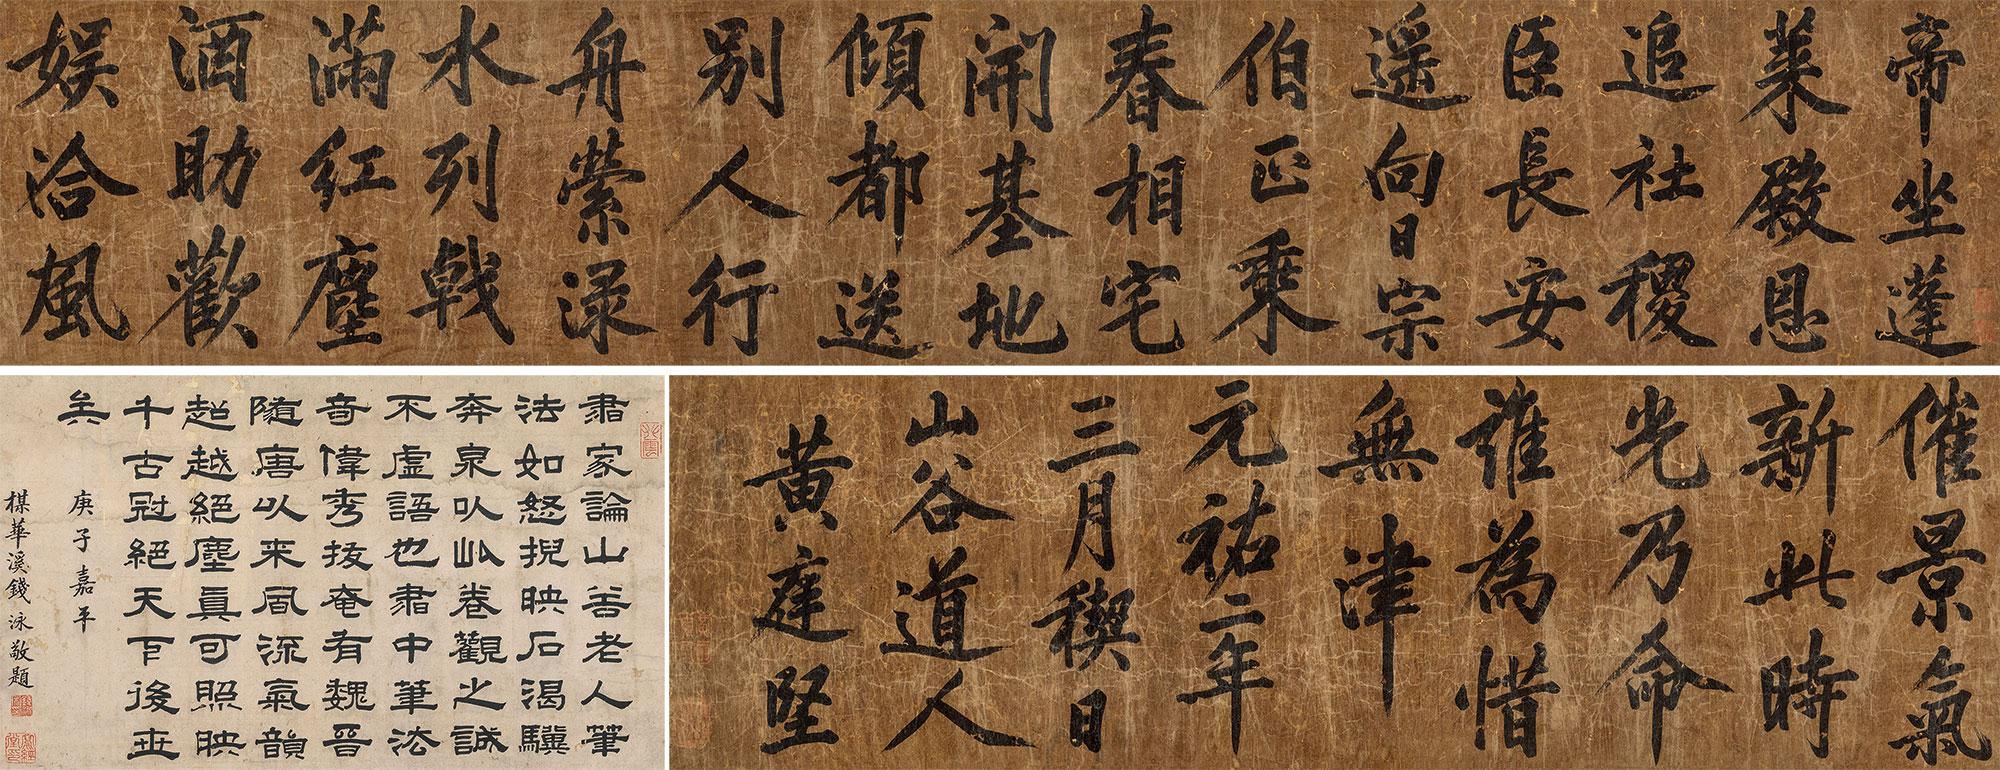 帝坐蓬
莱殿恩
追社稷
臣長安
遥向日宗
伯正乘
春相宅
開基地
傾都送
別人行
舟縈渌
水列戟
滿紅塵
酒助歡
娱洽風
催景氣
新此時
光乃命
誰為惜
無津
元祐二年
三月稧日
山谷道人
黄庭堅
書家論山谷老人筆
法如怒猊映石渴驥
奔泉以此卷觀之誠
不虛語也書中筆法
奇偉秀拔奄有魏晉
隨唐以来風流氣韻
超越絕塵真可照映
千古冠絕天下後世
矣
庚子嘉平
楳華溪錢泳敬題